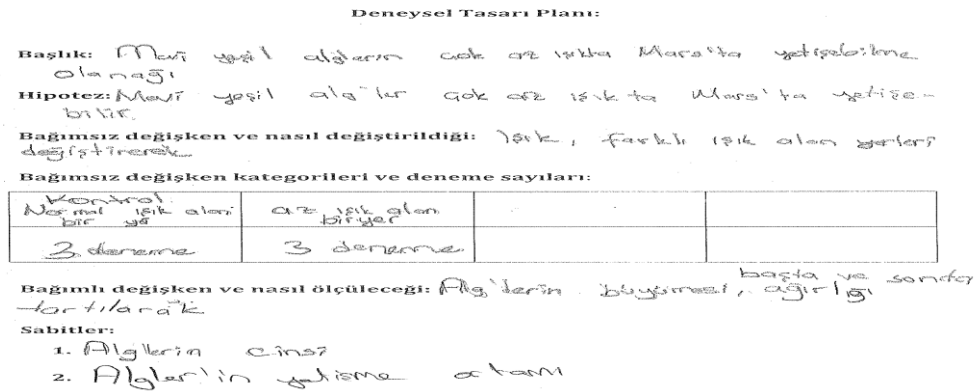 Deneysel Tasarı Planı:
Başlık: Mavi yeşil alglerin çok az ışıkta Mars'ta yetişebilme
olanağı
Hipotez: Mavi yeşil alg'ler çok az ışıkta Mars'ta yetişe-
bilir.
Bağımsız değişken ve nasıl değiştirildiği: Işık, farklı ışık alan yerleri
değiştirerek
Bağımsız değişken kategorileri ve deneme sayıları:
Kontrol
Normal ışık alan az ışık alan
bir yer bir yer
3 deneme 3 deneme
Bağımlı değişken ve nasıl ölçüleceği: Alg'lerin büyümesi, ağırlığı başta ve sonda
tartılarak
Sabitler:
1. Alg'lerin cinsi
2. Algler'in yetişme ortamı